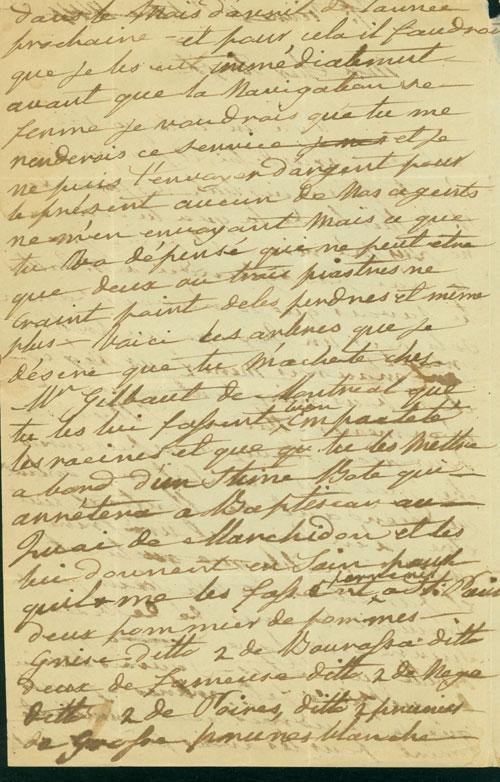 dans le Mois d'avril de l'année
prochaine - et pour cela il faudrai
que je les eut immédiatement
avant que la Navigation se
ferme je voudrais que tu me
renderois ce service et je
ne puis t'envoyer d'argent pour
le présent aucun de Nos agents
ne m'en envoyant Mais ce que
tu va dépensé qui ne peut etre
que deux ou trois piastres ne
craint point de les perdres et même
plus - Voici les arbres que je
désire que tu m'achete chez
Mr Gilbaut de Montreal que
tu les lui fassent bien empacteté
les racines et que tu les Mettra
a bord d'un Stime Bote qui
arrétera a Baptiscan au
Quai de Marchidon et les
lui donnent en Soin pour
qu'il me les fasse a St.
deux pommier de pommes
Grise ditto 2 de Bourassa ditto
deux de fameuse ditto 2 de Neige
ditto 2 de Poires, ditto 2 prunier
de Grosse prunes blanche